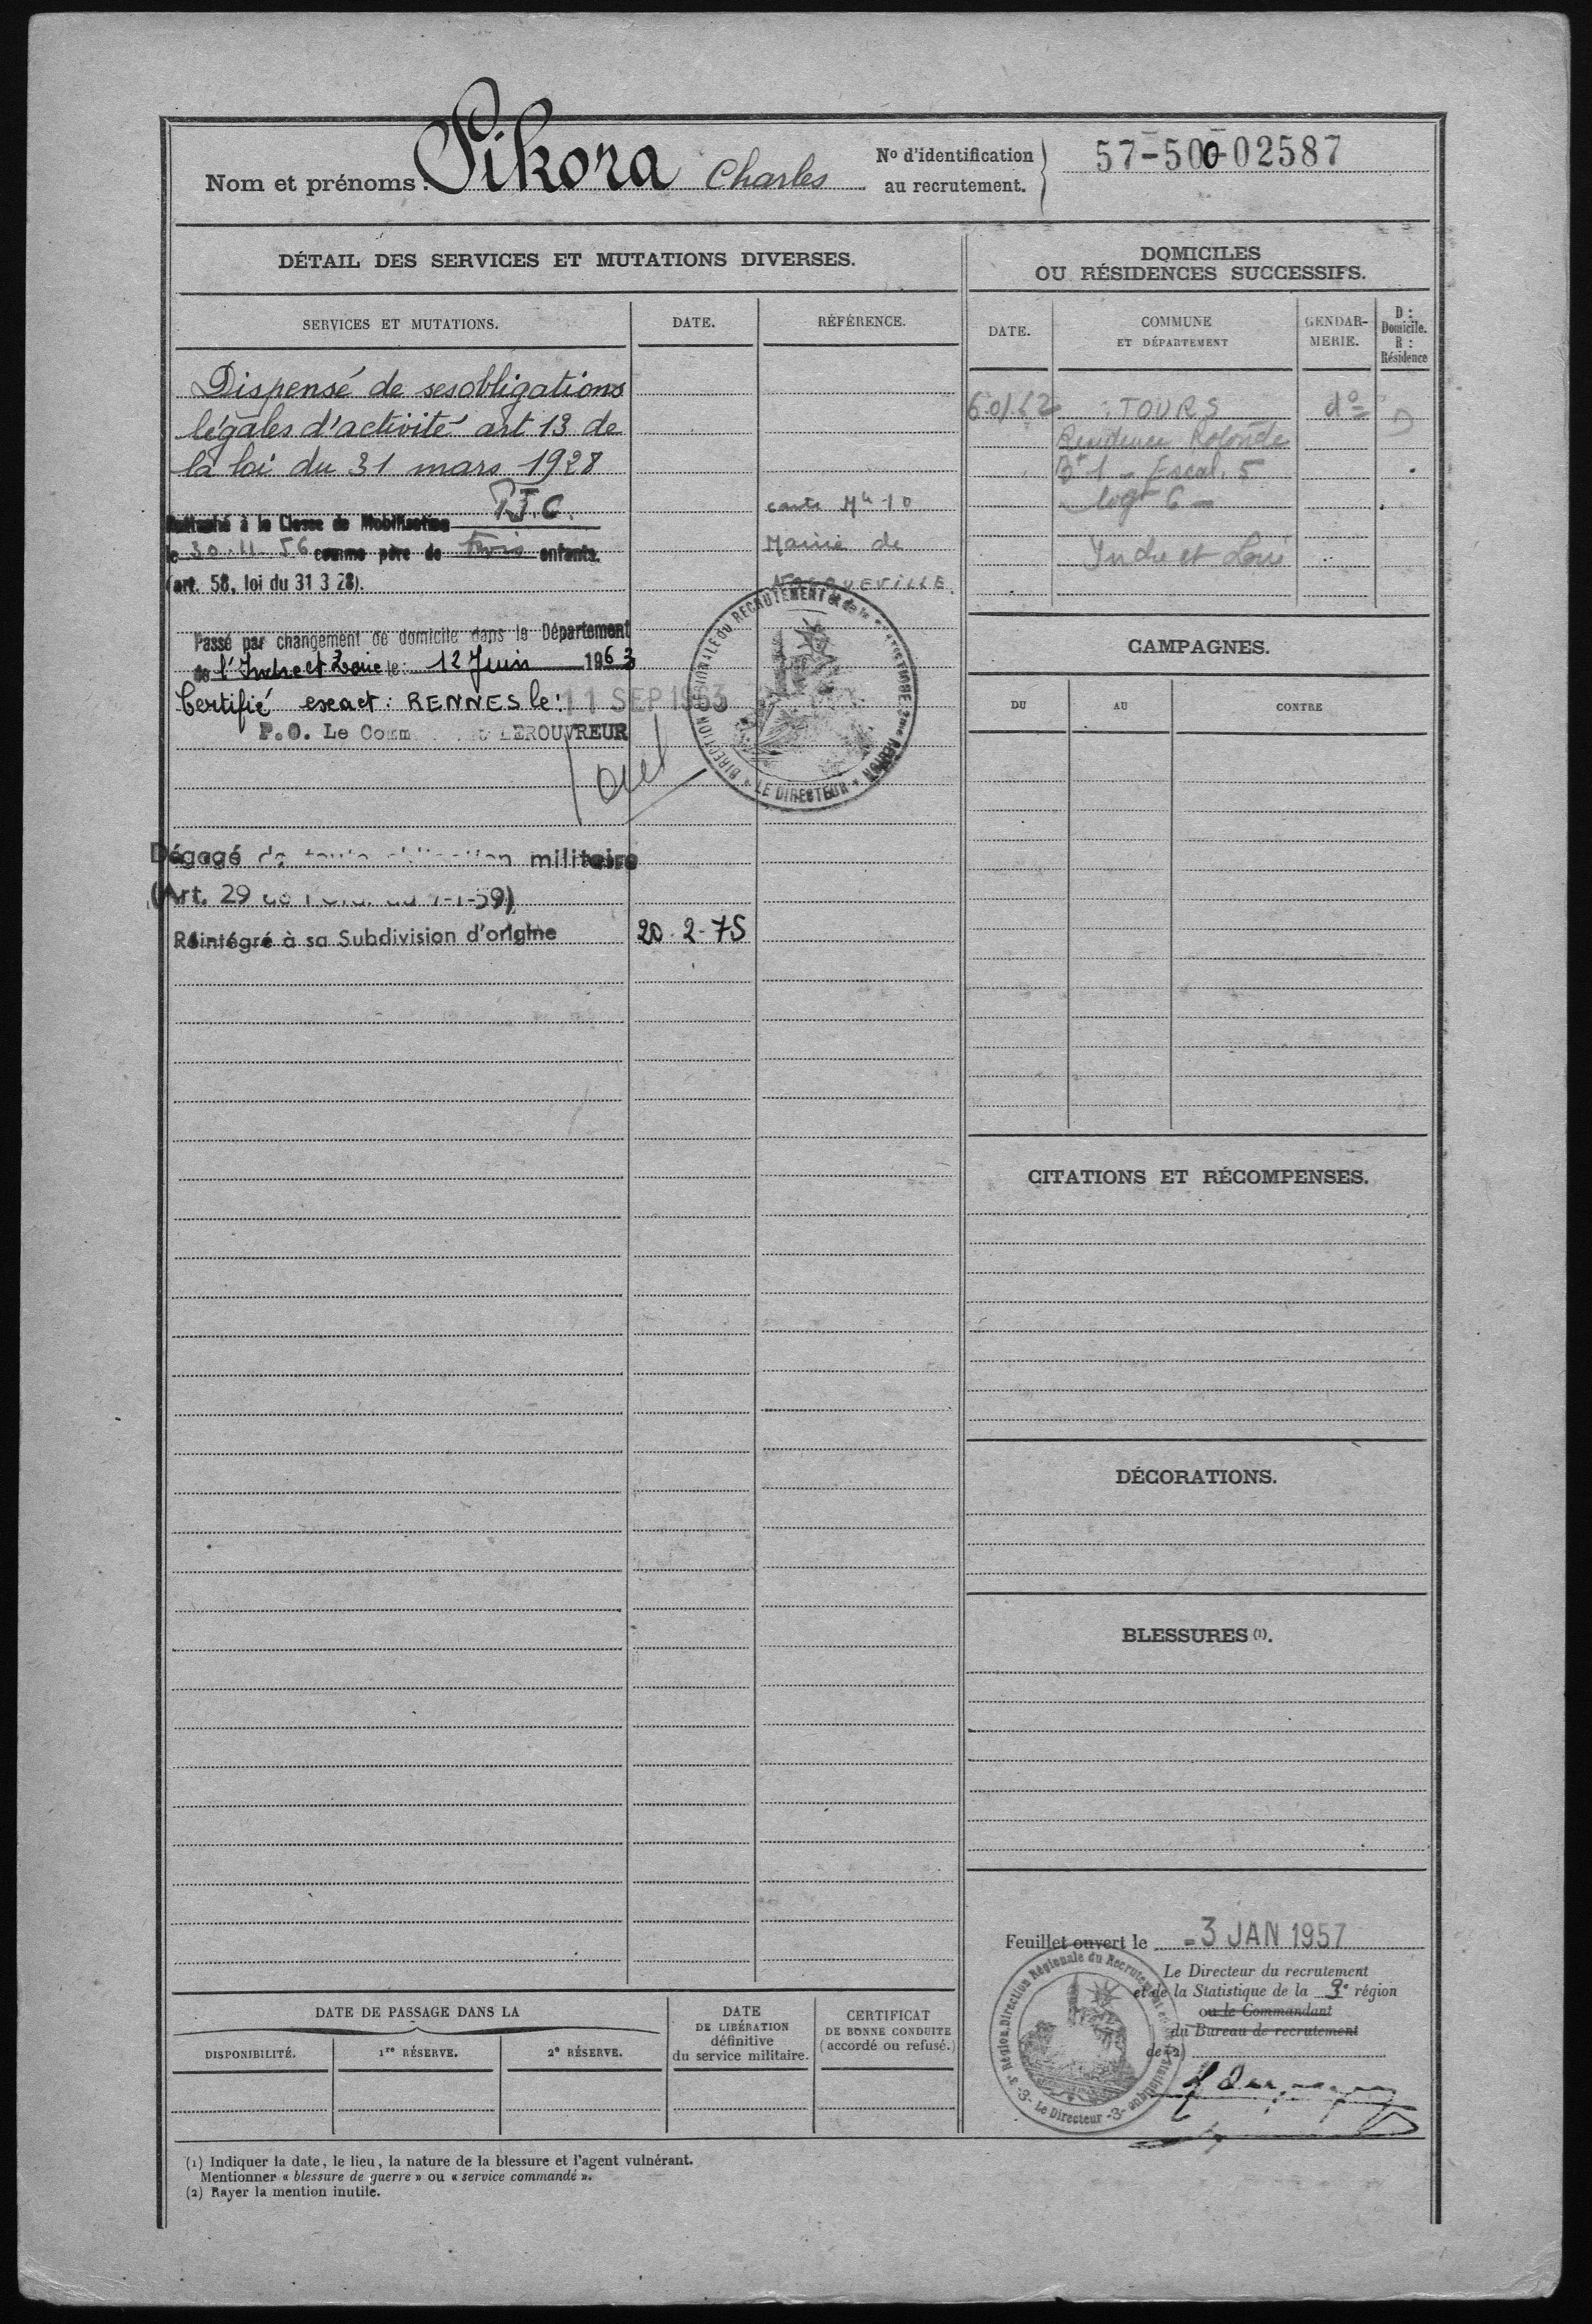 Nom et prénoms : Pikora Charles
N° d'identification au recrutement. 57-500-02587
DÉTAIL DES SERVICES ET MUTATIONS DIVERSES.
SERVICES ET MUTATIONS.
DATE.
RÉFÉRENCE.
Dispensé de ses obligations
légales d'activité art 13 de
la loi du 31 mars 1928
à la Classe de Mobilisation
carte
le 30-11-56 comme père de trois enfants.
Mairie de
(art. 58, loi du 31 3 28).
Passé par changement de domicile dans le Département
de l'Indre et Loire le: 12 Juin 1963
Certifié exact : RENNES le: 11 SEP 1963
P.O. Le LEROUVREUR
DIRECTION RÉGIONALE du RECRUTEMENT et de la REGION * LE DIRECTEUR *
Dégagé de militaire
(Art. 29
Réintégré à sa Subdivision d'origine 20-2-75
DOMICILES
OU RÉSIDENCES SUCCESSIFS.
DATE.
COMMUNE
ET DÉPARTEMENT
GENDAR-
MERIE.
D :
Domicile.
R :
Résidence
TOURS d° D
Résidence Rotonde
Bt 1 - Escal. 5
logt 6 -
Indre et Loire
CAMPAGNES.
DU
AU
CONTRE
CITATIONS ET RÉCOMPENSES.
DÉCORATIONS.
BLESSURES (1).
Feuillet ouvert le -3 JAN 1957
Le Directeur du recrutement
et de la Statistique de la 3e région
ou le Commandant
du Bureau de recrutement
de (2)
3e Région. Direction Régionale du Recrutement et de la Statistique -3- Le Directeur -3-
DATE DE PASSAGE DANS LA
DISPONIBILITÉ.
1re RÉSERVE.
2e RÉSERVE.
DATE
DE LIBÉRATION
définitive
du service militaire.
CERTIFICAT
DE BONNE CONDUITE
(accordé ou refusé.)
(1) Indiquer la date, le lieu, la nature de la blessure et l'agent vulnérant.
Mentionner « blessure de guerre » ou « service commandé ».
(2) Rayer la mention inutile.